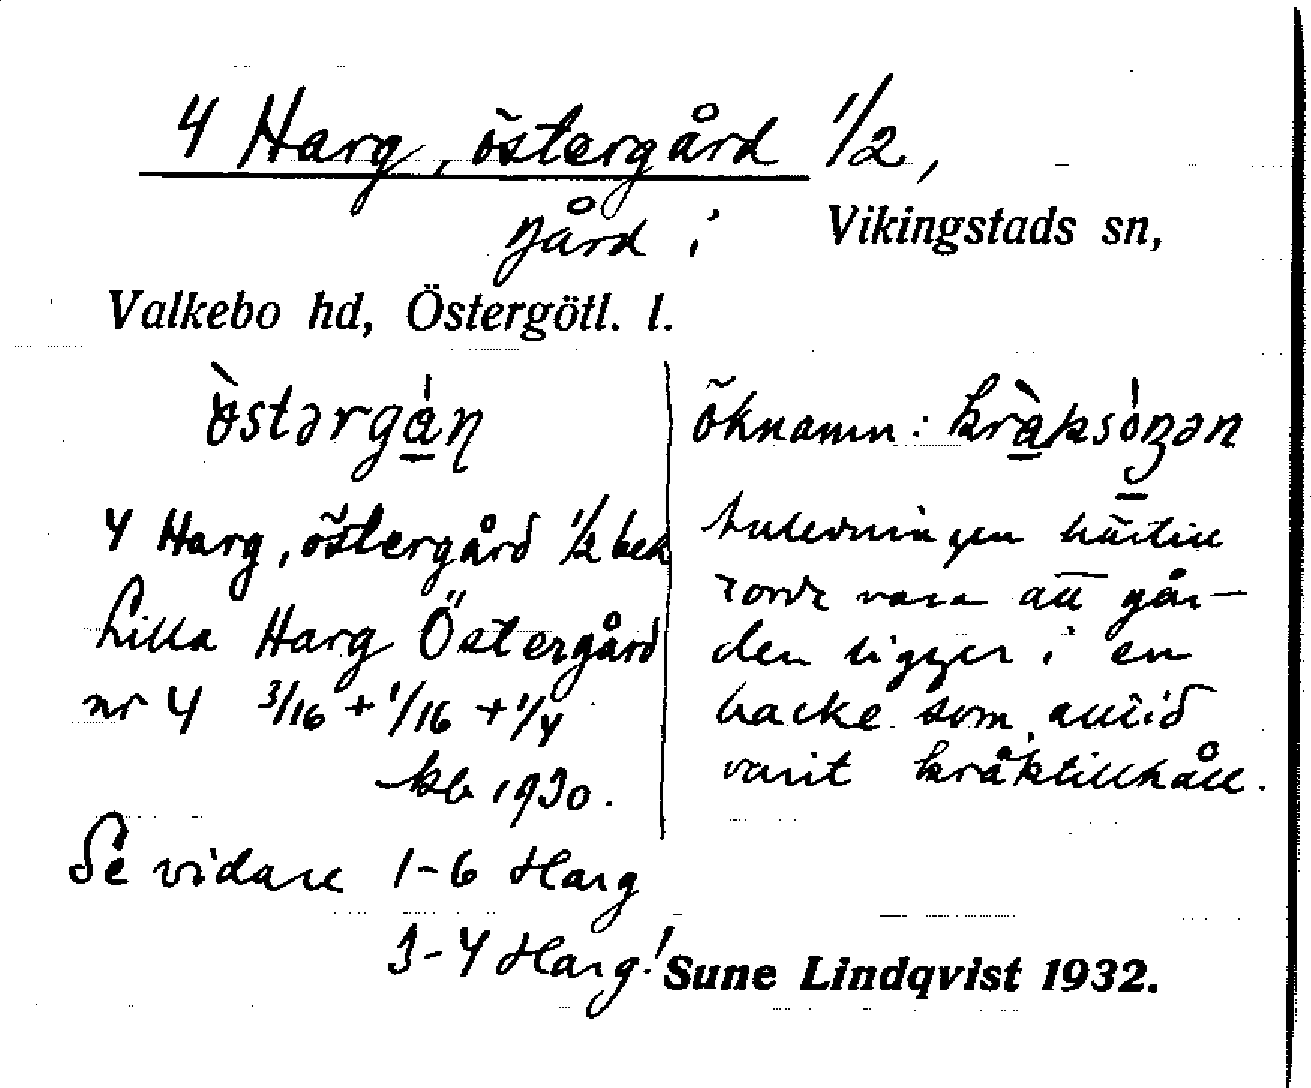 4 Harg, östergård 1/2,
gård i Vikingstads sn,
Valkebo hd, Östergötl. l.
östərgàn
4 Harg, östergård 1/2 bek
Lilla Harg Östergård
nr 4 3/16 + 1/16 + 1/4
kb 1930.
Se vidare 1-6 Harg
3-4 Harg!
öknamn:
Anledningen härtill
torde vara att går-
den ligger i en
backe som alltid
varit kråktillhåll.
Sune Lindqvist 1932.